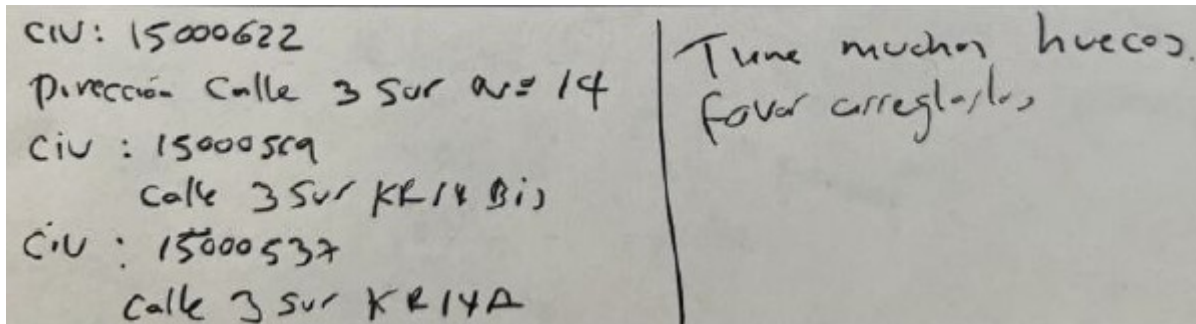 CIU: 15000622
Dirección Calle 3 Sur N= 14
CIU: 15000569
Calle 3 Sur KR14 Bis
CIU: 15000537
Calle 3 Sur KR14A
Tiene muchos huecos.
Favor arreglarlos